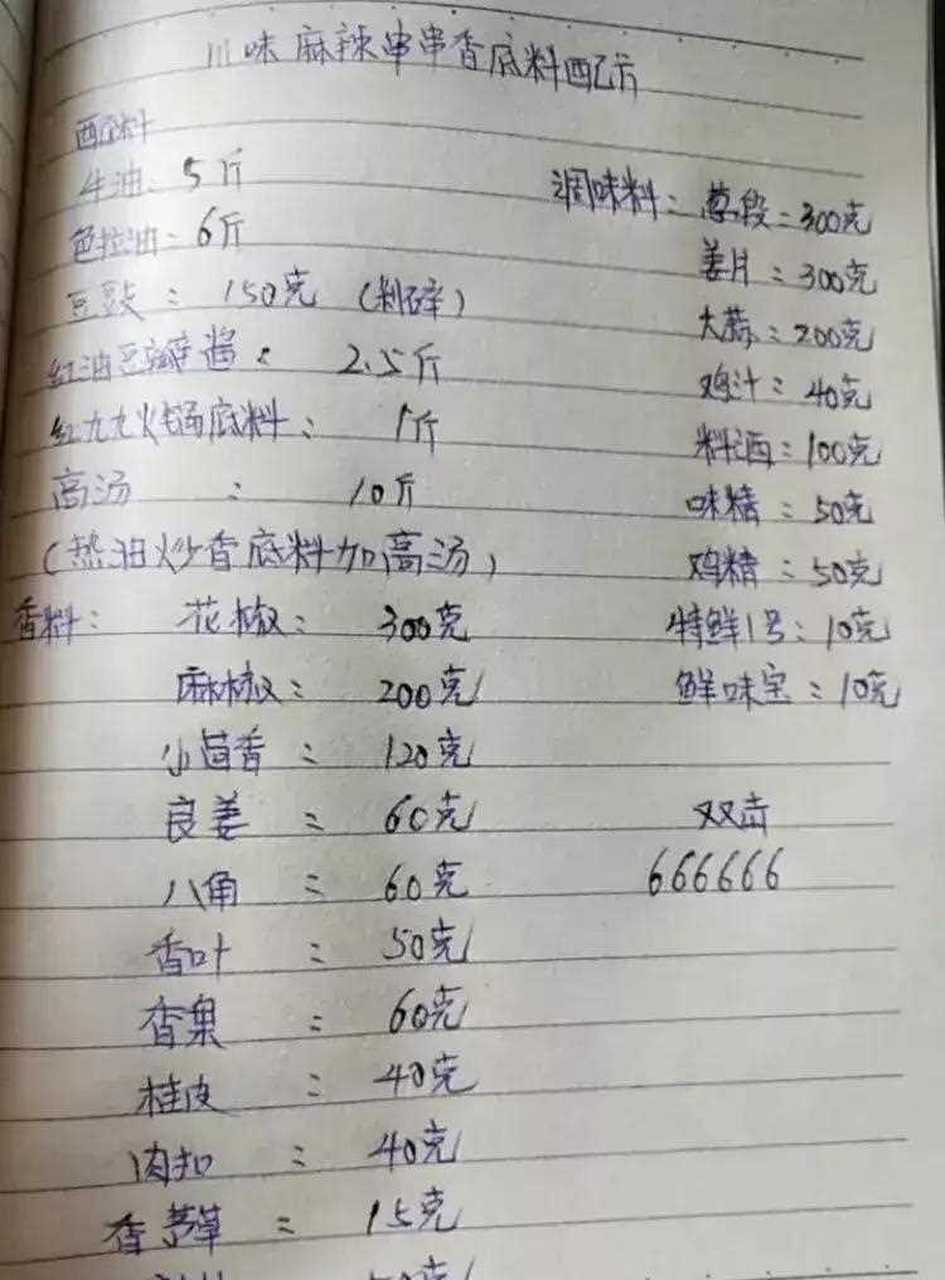 川味麻辣串串香底料配方
配料
牛油: 5斤
色拉油: 6斤
豆豉: 150克 (剁碎)
红油豆瓣酱: 2.5斤
红九九火锅底料: 1斤
高汤: 10斤
(热油炒香底料加高汤)
香料: 花椒: 300克
麻椒: 200克
小茴香: 120克
良姜: 60克
八角: 60克
香叶: 50克
香果: 60克
桂皮: 40克
肉扣: 40克
香茅草: 15克
调味料: 葱段: 300克
姜片: 300克
大蒜: 200克
鸡汁: 40克
料酒: 100克
味精: 50克
鸡精: 50克
特鲜1号: 10克
鲜味宝: 10克
双击
666666